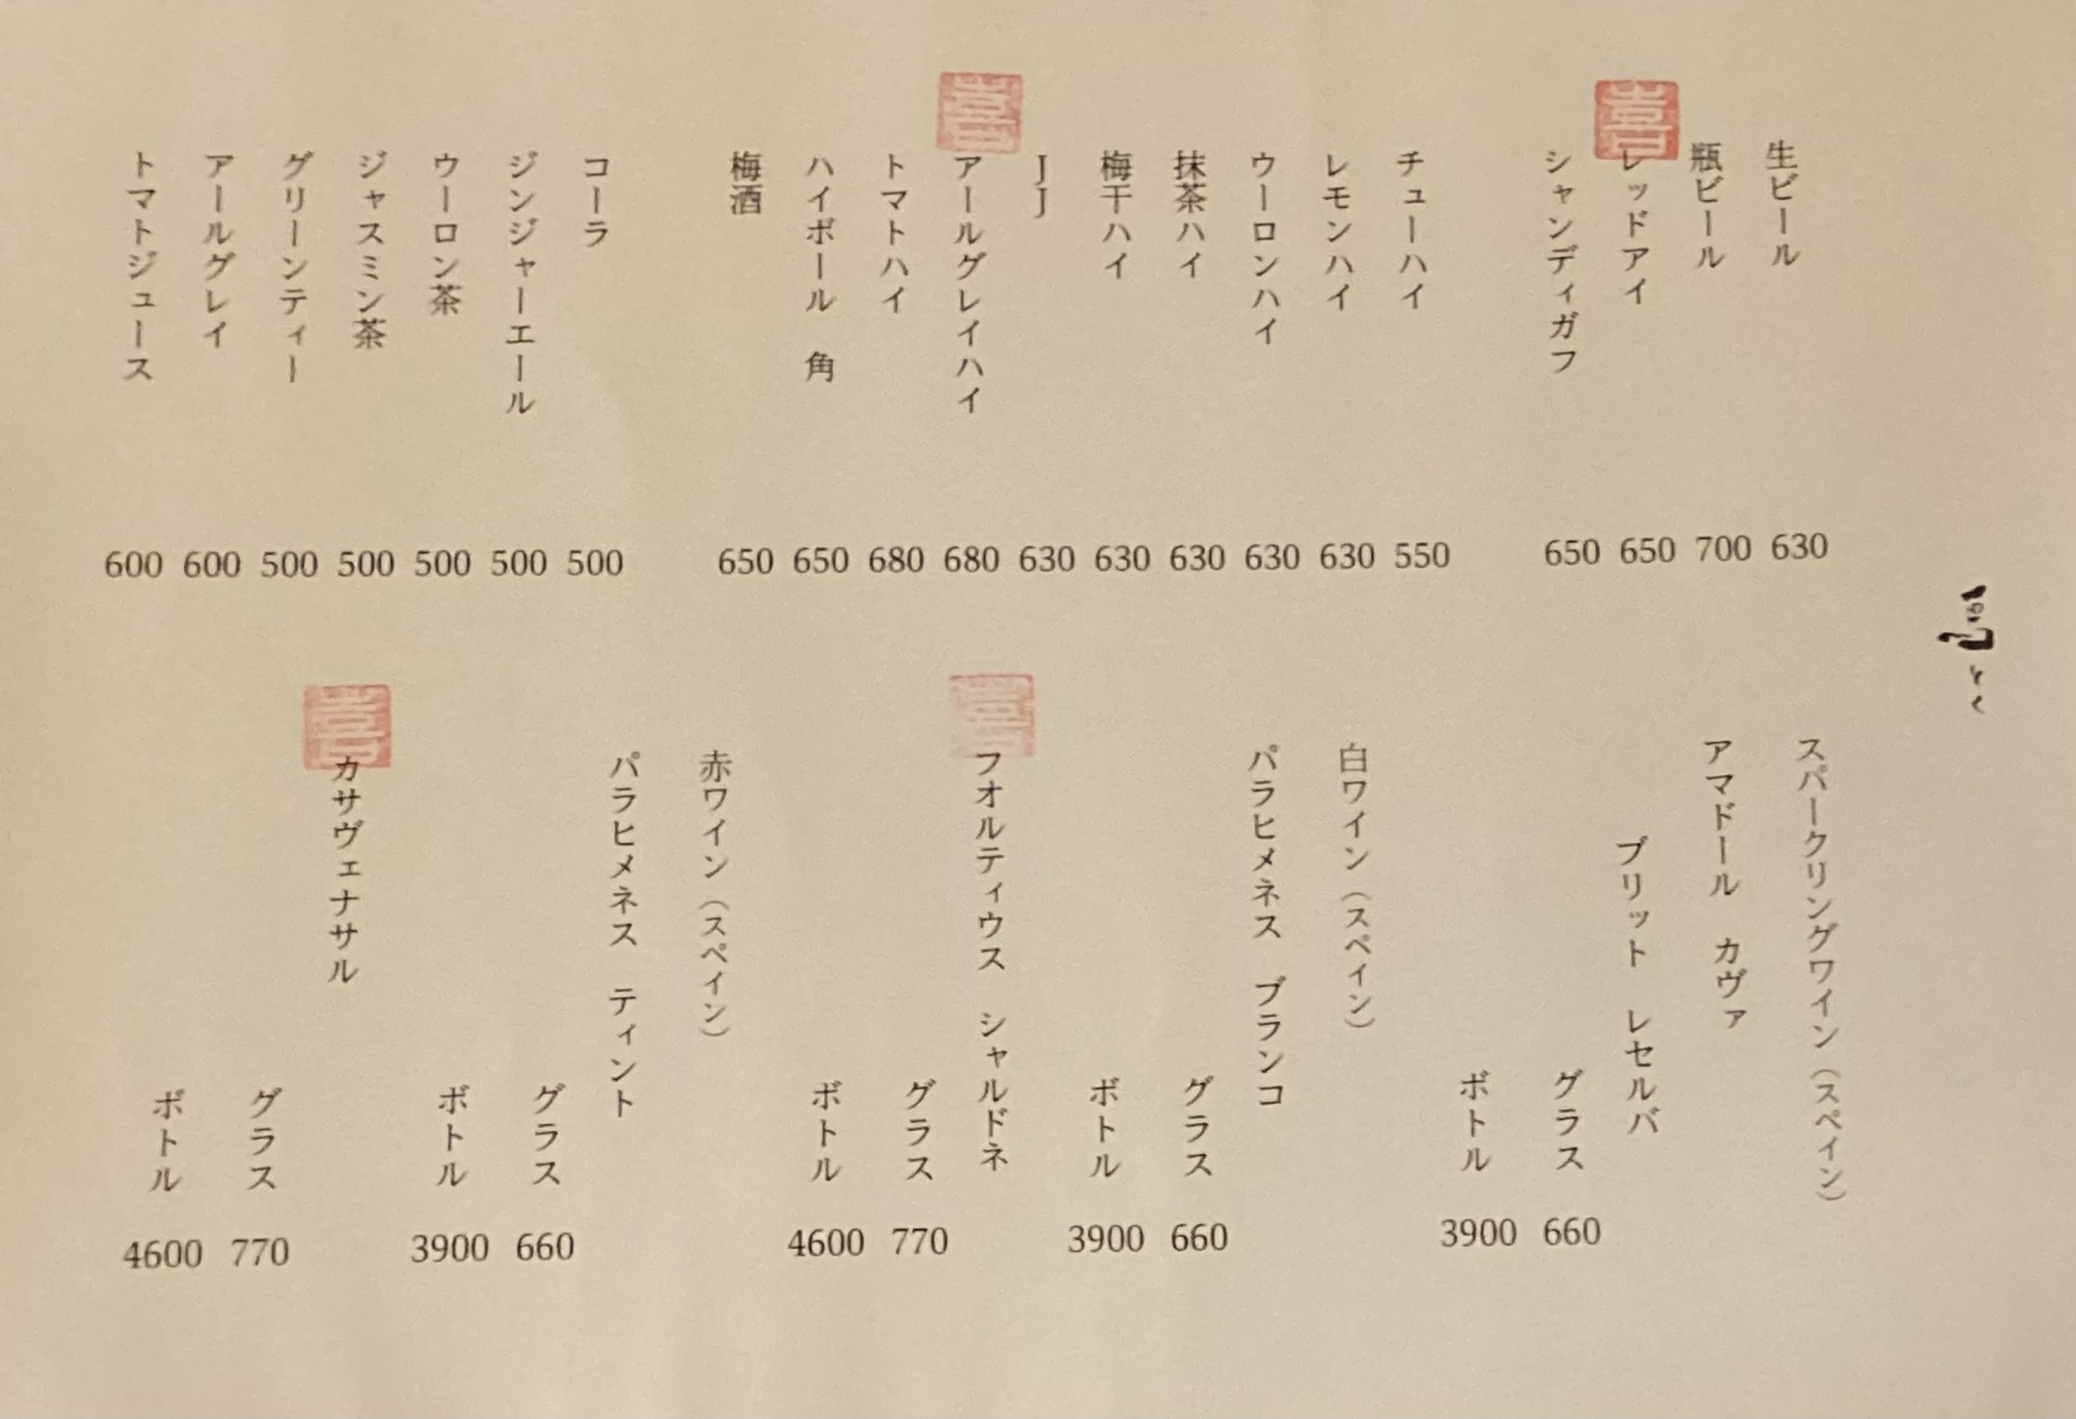 生ビール 630
瓶ビール 700
レッドアイ 650
シャンディガフ 650
チューハイ 550
レモンハイ 630
ウーロンハイ 630
抹茶ハイ 630
梅干ハイ 630
JJ 630
アールグレイハイ 680
トマトハイ 680
ハイボール 角 650
梅酒 650
コーラ 500
ジンジャーエール 500
ウーロン茶 500
ジャスミン茶 500
グリーンティー 500
アールグレイ 600
トマトジュース 600
スパークリングワイン（スペイン）
アマドール カヴァ
ブリット レセルバ
グラス 660
ボトル 3900
白ワイン（スペイン）
パラヒメネス ブランコ
グラス 660
ボトル 3900
フオルティウス シャルドネ
グラス 770
ボトル 4600
赤ワイン（スペイン）
パラヒメネス ティント
グラス 660
ボトル 3900
カサヴェナサル
グラス 770
ボトル 4600
喜
喜
喜
喜